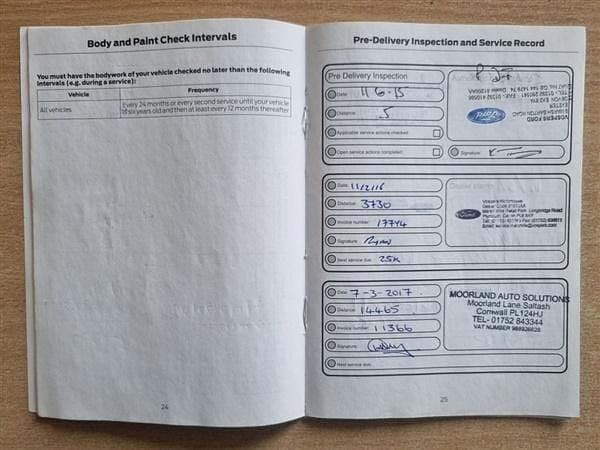 Body and Paint Check Intervals
You must have the bodywork of your vehicle checked no later than the following
intervals (e.g. during a service):
Vehicle Frequency
All vehicles. Every 24 months or every second service until your vehicle
is six years old and then at least every 12 months thereafter
24
Pre-Delivery Inspection and Service Record
Pre Delivery Inspection
Date: 11 6-15
Distance: 5
Applicable service actions checked
Open service actions completed
Signature:
VOSPERS FORD
MARSH BARTON ROAD
EXETER
Ford
Date: 11/2/16
Distance: 3730
Invoice number: 17744
Signature: Ryan
Next service due: 25K
Ford
Date: 7-3-2017
Distance: 14465
Invoice number: 11366
Signature:
Next service due:
MOORLAND AUTO SOLUTIONS
Moorland Lane Saltash
Cornwall PL124HJ
TEL- 01752 843344
VAT NUMBER
25